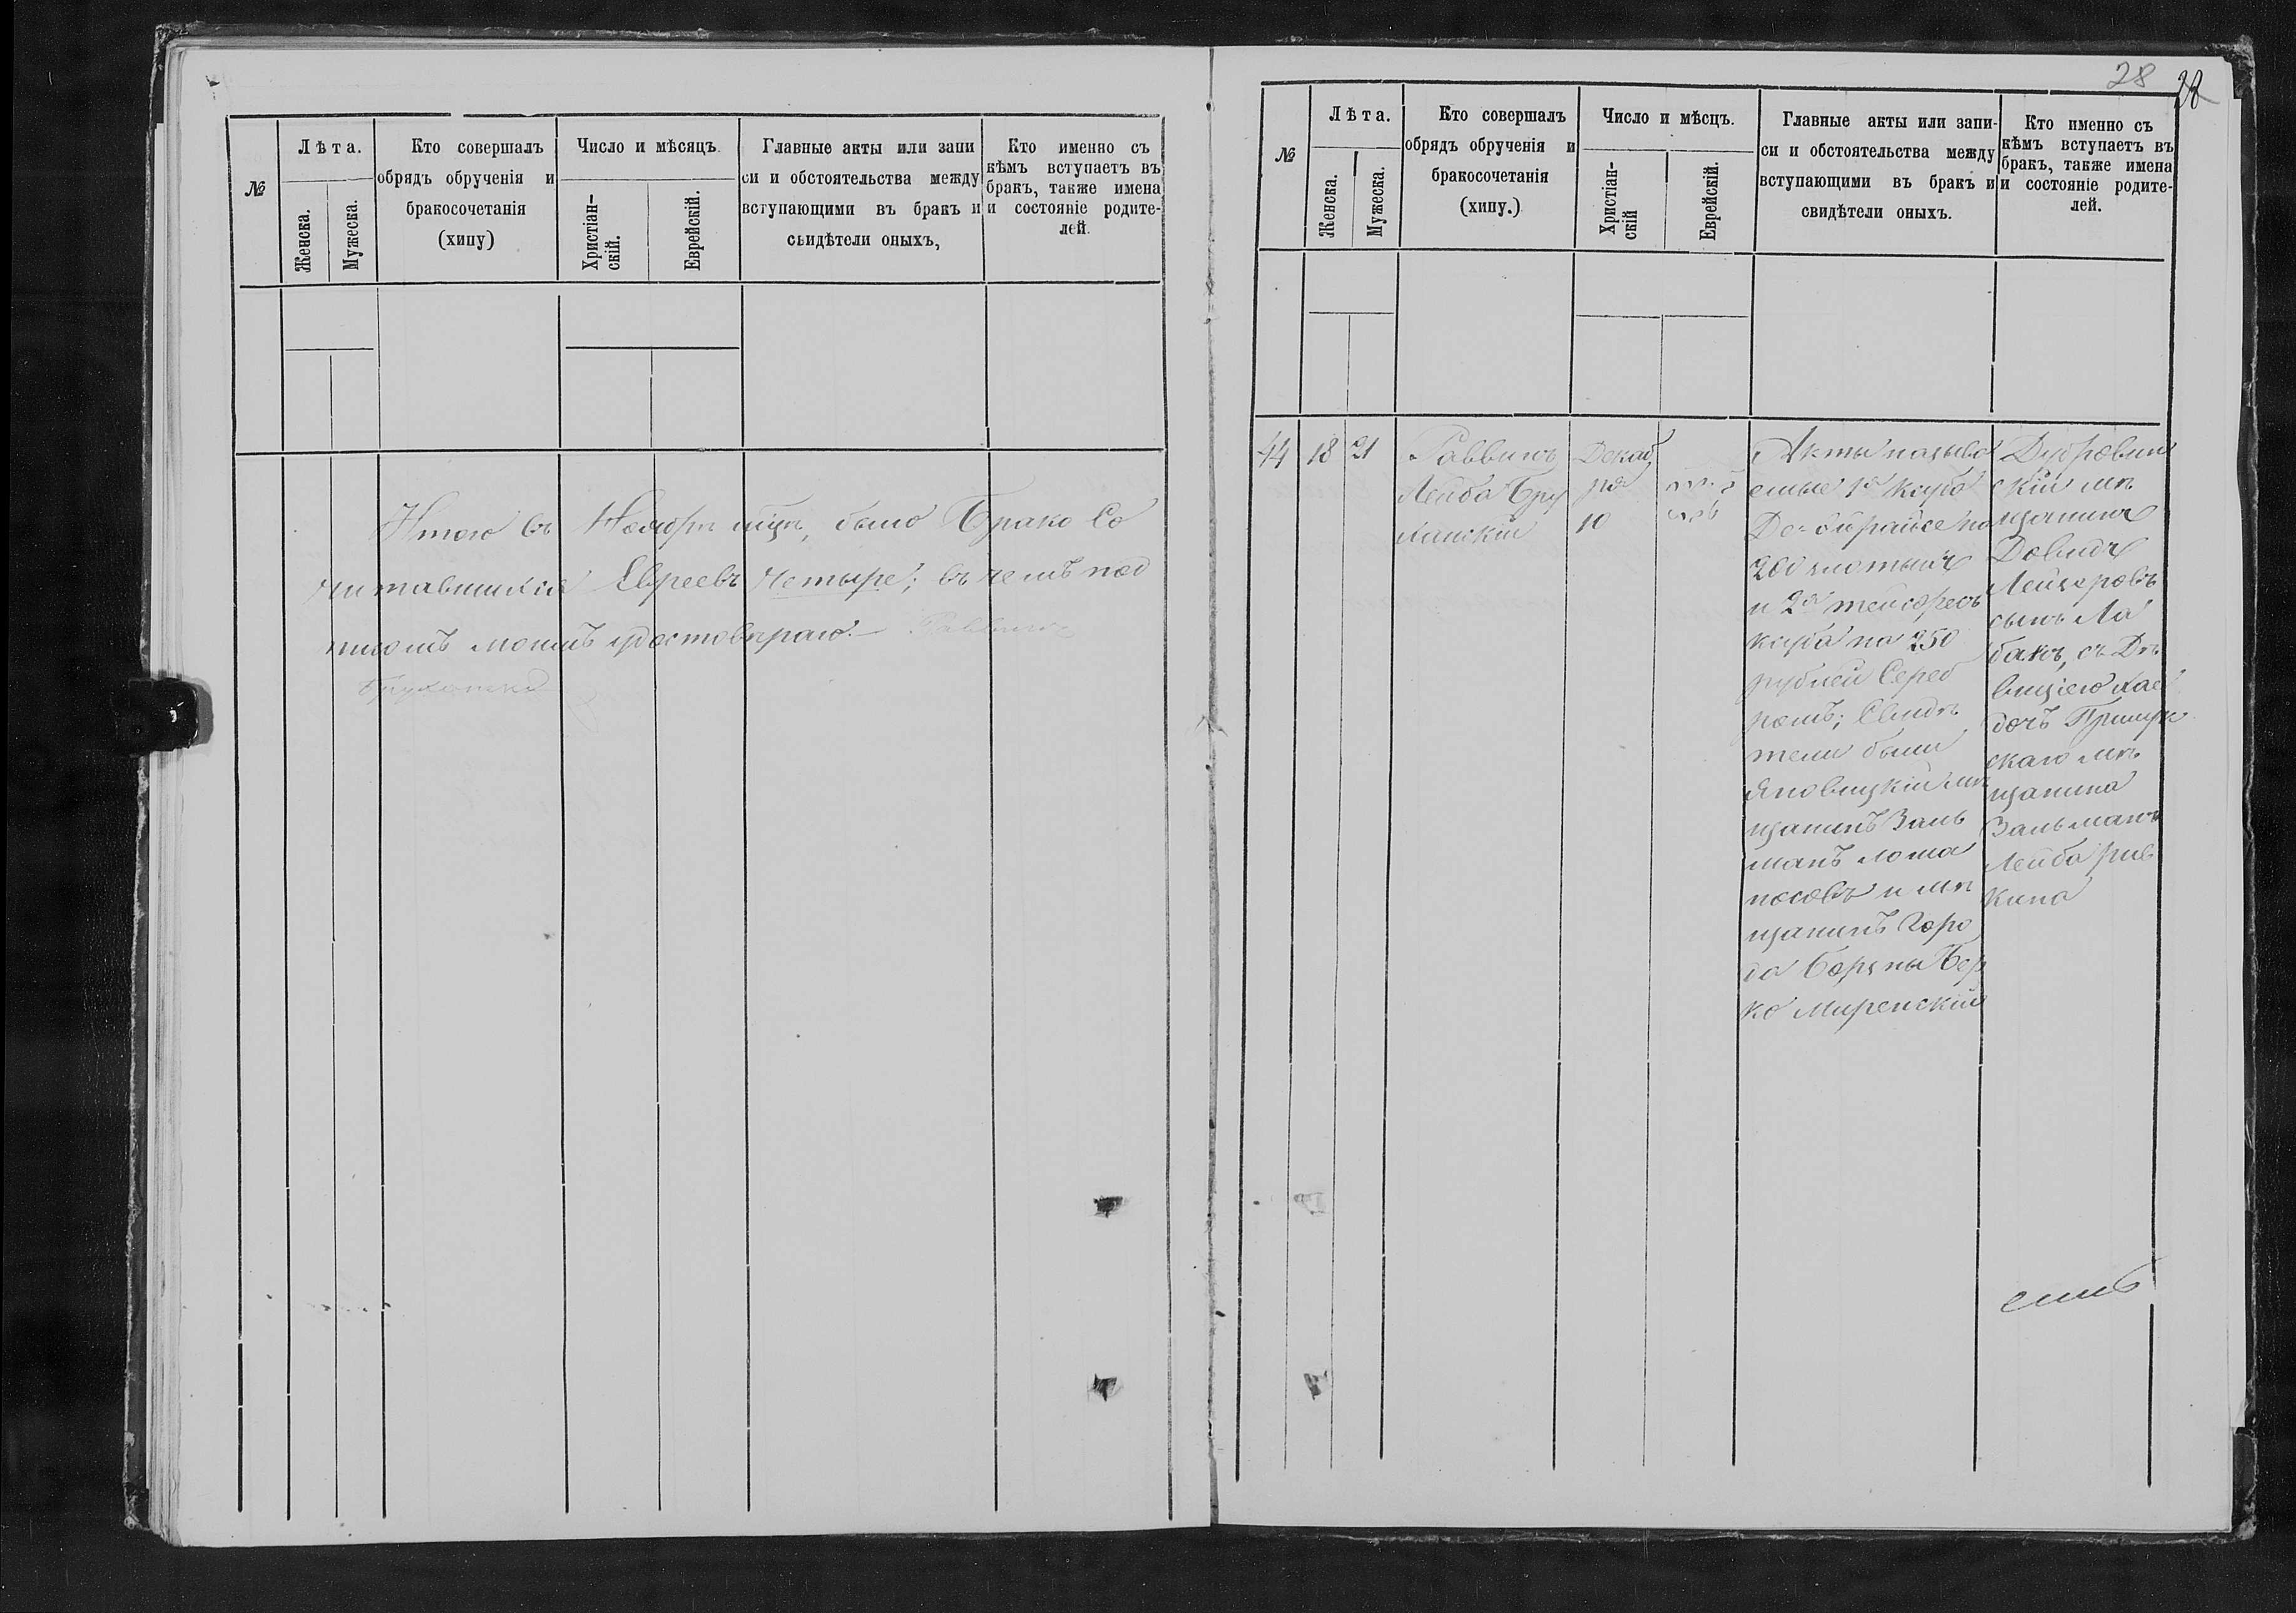 №
Лѣта.
Женска.
Мужеска.
Кто совершалъ
обрядъ обрученія и
бракосочетанія
(хипу)
Число и мѣсяцъ
Христіан-
скій.
Еврейскій.
Главные акты или запи
си и обстоятельства между
вступающими въ бракъ и
свидѣтели оныхъ,
Кто именно съ
кѣмъ вступаетъ въ
бракъ, также имена
и состояніе родите-
лей.
Итого въ Ноябрѣ мцѣ, было Брако Со
читавшихся Евреевъ Четыре; въ чемъ под
писомъ моимъ удостовѣраю. Раввинъ
28
28
№
Лѣта.
Женска.
Мужеска.
Кто совершалъ
обрядъ обрученія и
бракосочетанія
(хипу.)
Число и мѣсцъ.
Христіан-
скій
Еврейскій.
Главные акты или запи-
си и обстоятельства между
вступающими въ бракъ и
свидѣтели оныхъ.
Кто именно съ
кѣмъ вступаетъ въ
бракъ, также имена
и состояніе родите-
лей.
44
18
21
Раввинъ
Лейба Бру
Декаб
ря
10
Акты называ
емые 1й ксуба
200 злотыхъ
и 2й тейсфесъ
ксуба на 250
рублей Сереб
ромъ; Свидѣ
тели были
Яновицкій мѣ
щанинъ Заль
манъ Лоша
косовъ и мѣ
щанинъ горо
да Бер
ко Миренскій
Дубровин
скій мѣ
щанинъ
Довидъ
Лейзеровъ
сынъ Ла
банъ, съ Дѣ
вицею Хае
дочъ
скаго мѣ
щанина
Зальмана
Лейба Рив
кина